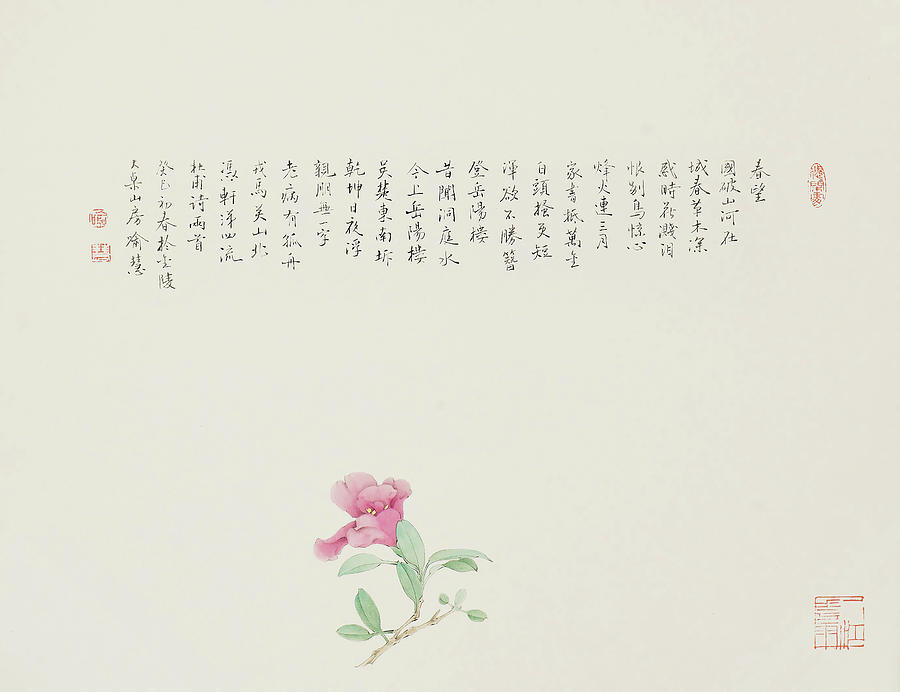 春望
國破山河在
城春草木深
感時花濺泪
恨别鳥惊心
烽火連三月
家書抵萬金
白頭搔更短
渾欲不勝簪
登岳陽樓
昔聞洞庭水
今上岳陽樓
吴楚東南坼
乾坤日夜浮
親朋無一字
老病有孤舟
戎馬关山北
馮軒涕泗流
杜甫诗兩首
癸巳初春於金陵
大桌山房喻慧